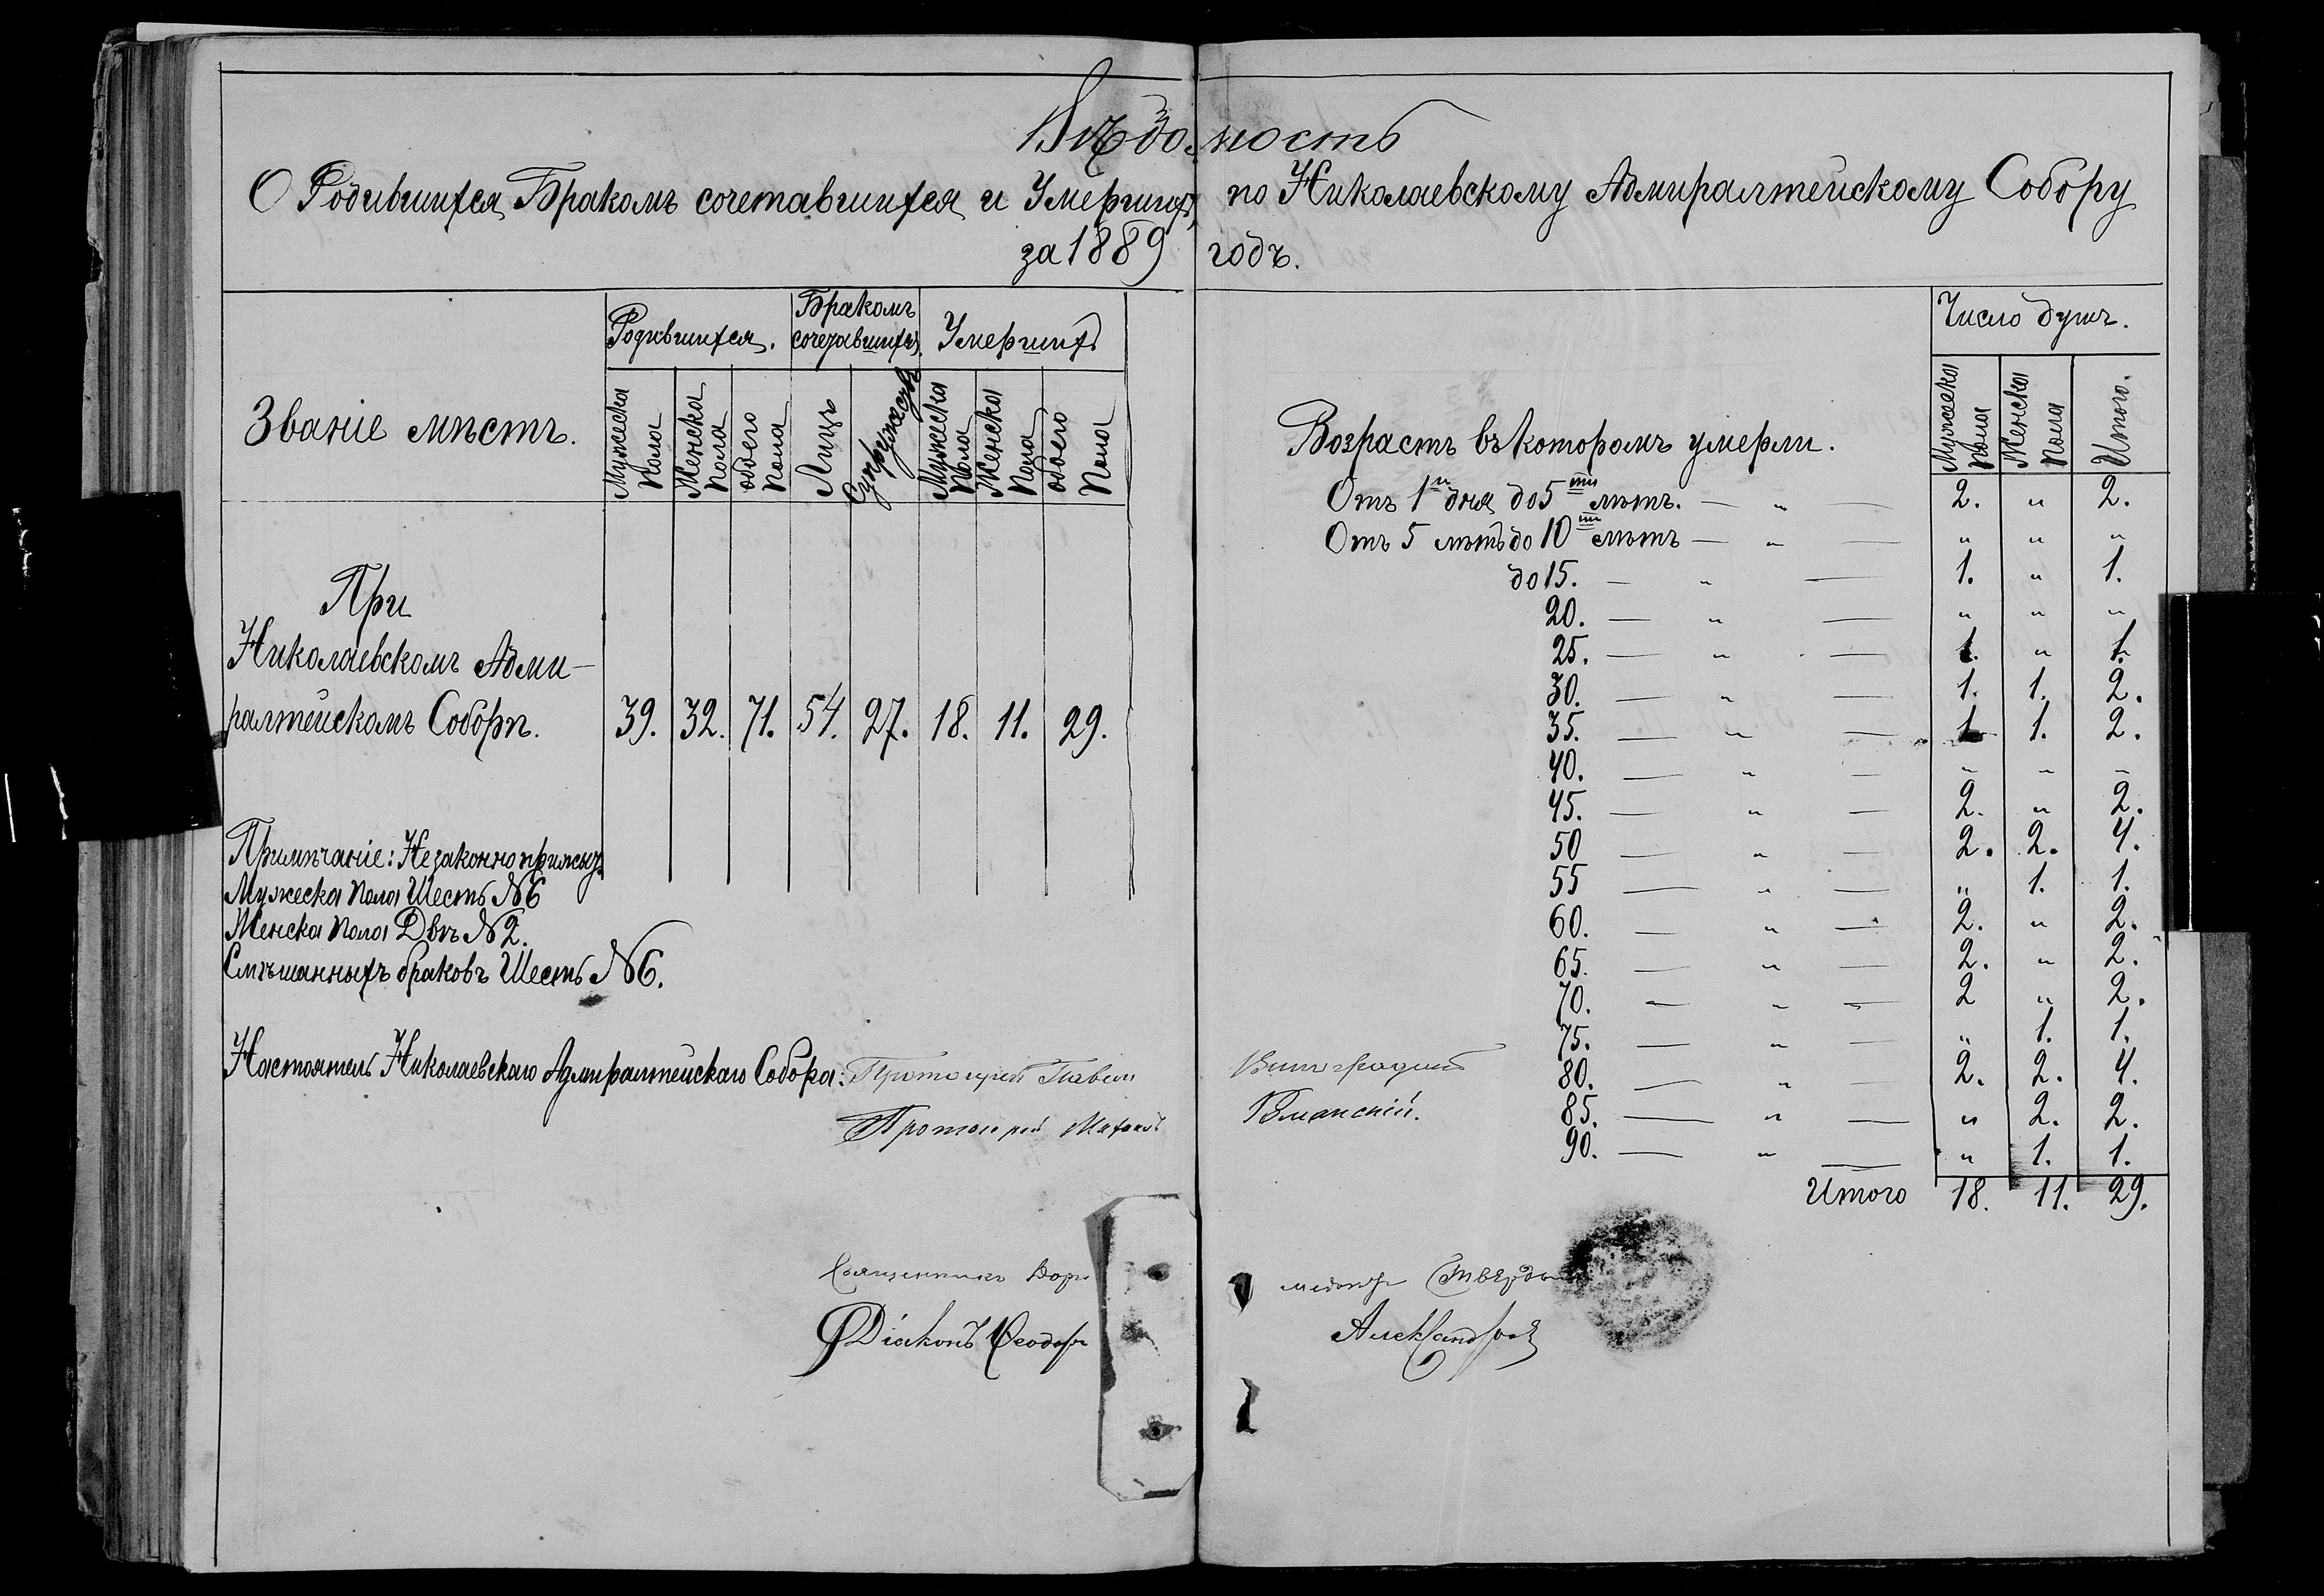 Вѣдомость
О Родившихся, Бракомъ сочетавшихся и Умершихъ по Николаевскому Адмиралтейскому Собору
за 1889 годъ.
Званіе мѣстъ.
Родившихся.
Бракомъ сочетавшихся.
Умершихъ
Мужеска пола
Женска пола
обоего пола
Лицъ
Супружествъ
Мужеска пола
Женска пола
обоего пола
При
Николаевскомъ Адми-
ралтейскомъ Соборѣ. 39. 32. 71. 54. 27. 18. 11. 29.
Примѣчаніе: Незаконноприжсыхъ
Мужеска пола Шесть №6
Женска пола Двѣ №2.
Смѣшанныхъ браковъ Шесть №6.
Настоятель Николаевскаго Адмиралтейскаго Собора: Протоіерей Павелъ
Протоіерей Михаилъ
Священникъ
Діаконъ Ѳеодоръ
Возрастъ въ которомъ умерли.
Число душъ.
Мужеска пола
Женска пола
Итого.
Отъ 1го дня до 5ти лѣтъ. — „ — 2. „ 2.
Отъ 5 лѣтъ до 10ти лѣтъ — „ — „ „ „
до 15. — „ — 1. „ 1.
20. — „ — „ „ „
25. — „ — 1. „ 1.
30. — „ — 1. 1. 2.
35. — „ — 1. 1. 2.
40. — „ — „ „ „
45. — „ — 2. „ 2.
50 — „ — 2. 2. 4.
55 — „ — „ 1. 1.
60. — „ — 2. „ 2.
65. — „ — 2. „ 2.
70. — „ — 2 „ 2.
75. — „ — „ 1. 1.
80. — „ — 2. 2. 4.
85. — „ — „ 2. 2.
90. — „ — „ 1. 1.
Итого 18. 11. 29.
Александровъ